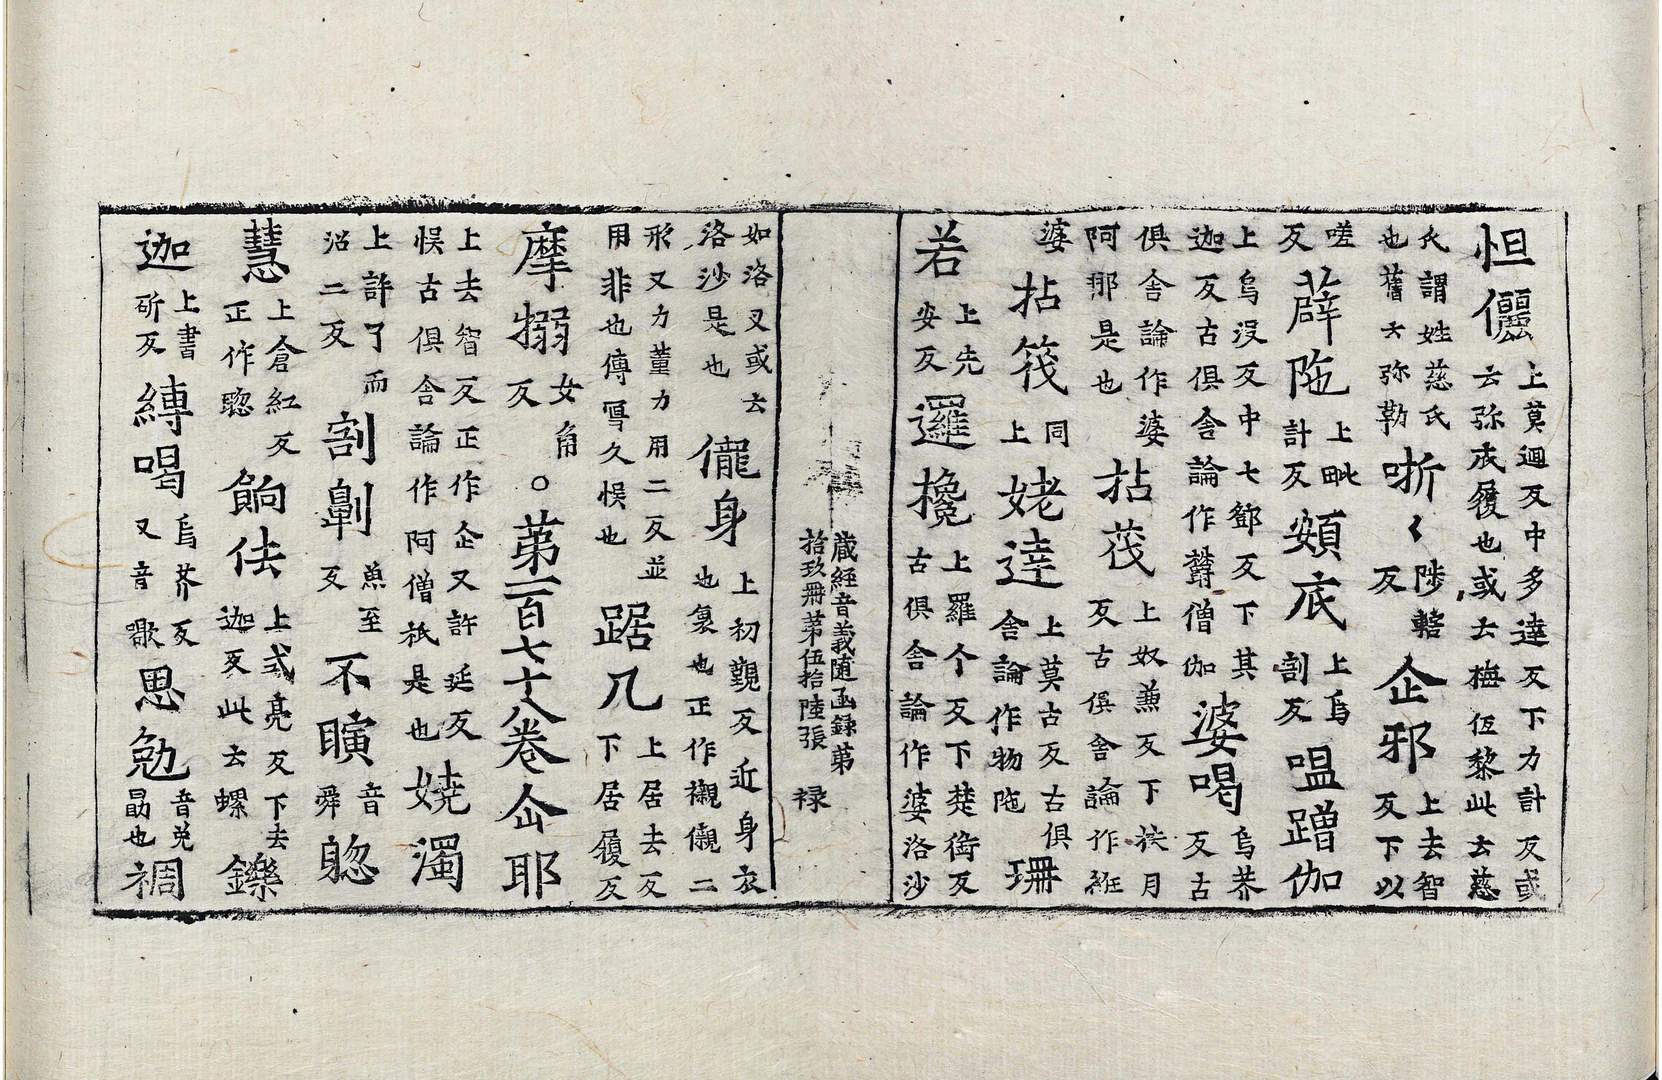 怛儷上莫迴反中多達反下力計反或云弥戍履也或云梅伍黎此云慈
氏謂姓慈氏也舊云弥勒哳〻陟轄反企邪上去智反下以
嗟反薜陁上毗計反頞底上烏割反嗢蹭伽
上烏没反中七鄧反下其迦反古俱舍論作欝僧伽婆喝烏芥反古
俱舍論作婆阿那是也拈筏上奴兼反下扶月反古俱舍論作紝
婆拈筏上同姥達上莫古反古俱舍論作物陁珊
若上先安反邏攙上羅个反下楚銜反古俱舍論作婆洛沙
藏經音義随函録第
拾玖冊第伍拾陸張 禄
如洛叉或云洛沙是也儱身上初覲反近身衣也裏也正作襯儭二
形又力董力用二反並用非也傳寫久悮也踞几上居去反下居履反
摩搦女角反○第一百七十八卷企耶
上去智反正作企又許延反悮古俱舍論作阿僧祇是也嬈濁
上許了而沼二反割劓魚至反不瞚音舜聦
慧上倉紅反正作聦餉佉上式亮反下去迦反此云螺鑠
迦上書斫反縛喝烏芥反又音歇思勉音免勗也禂